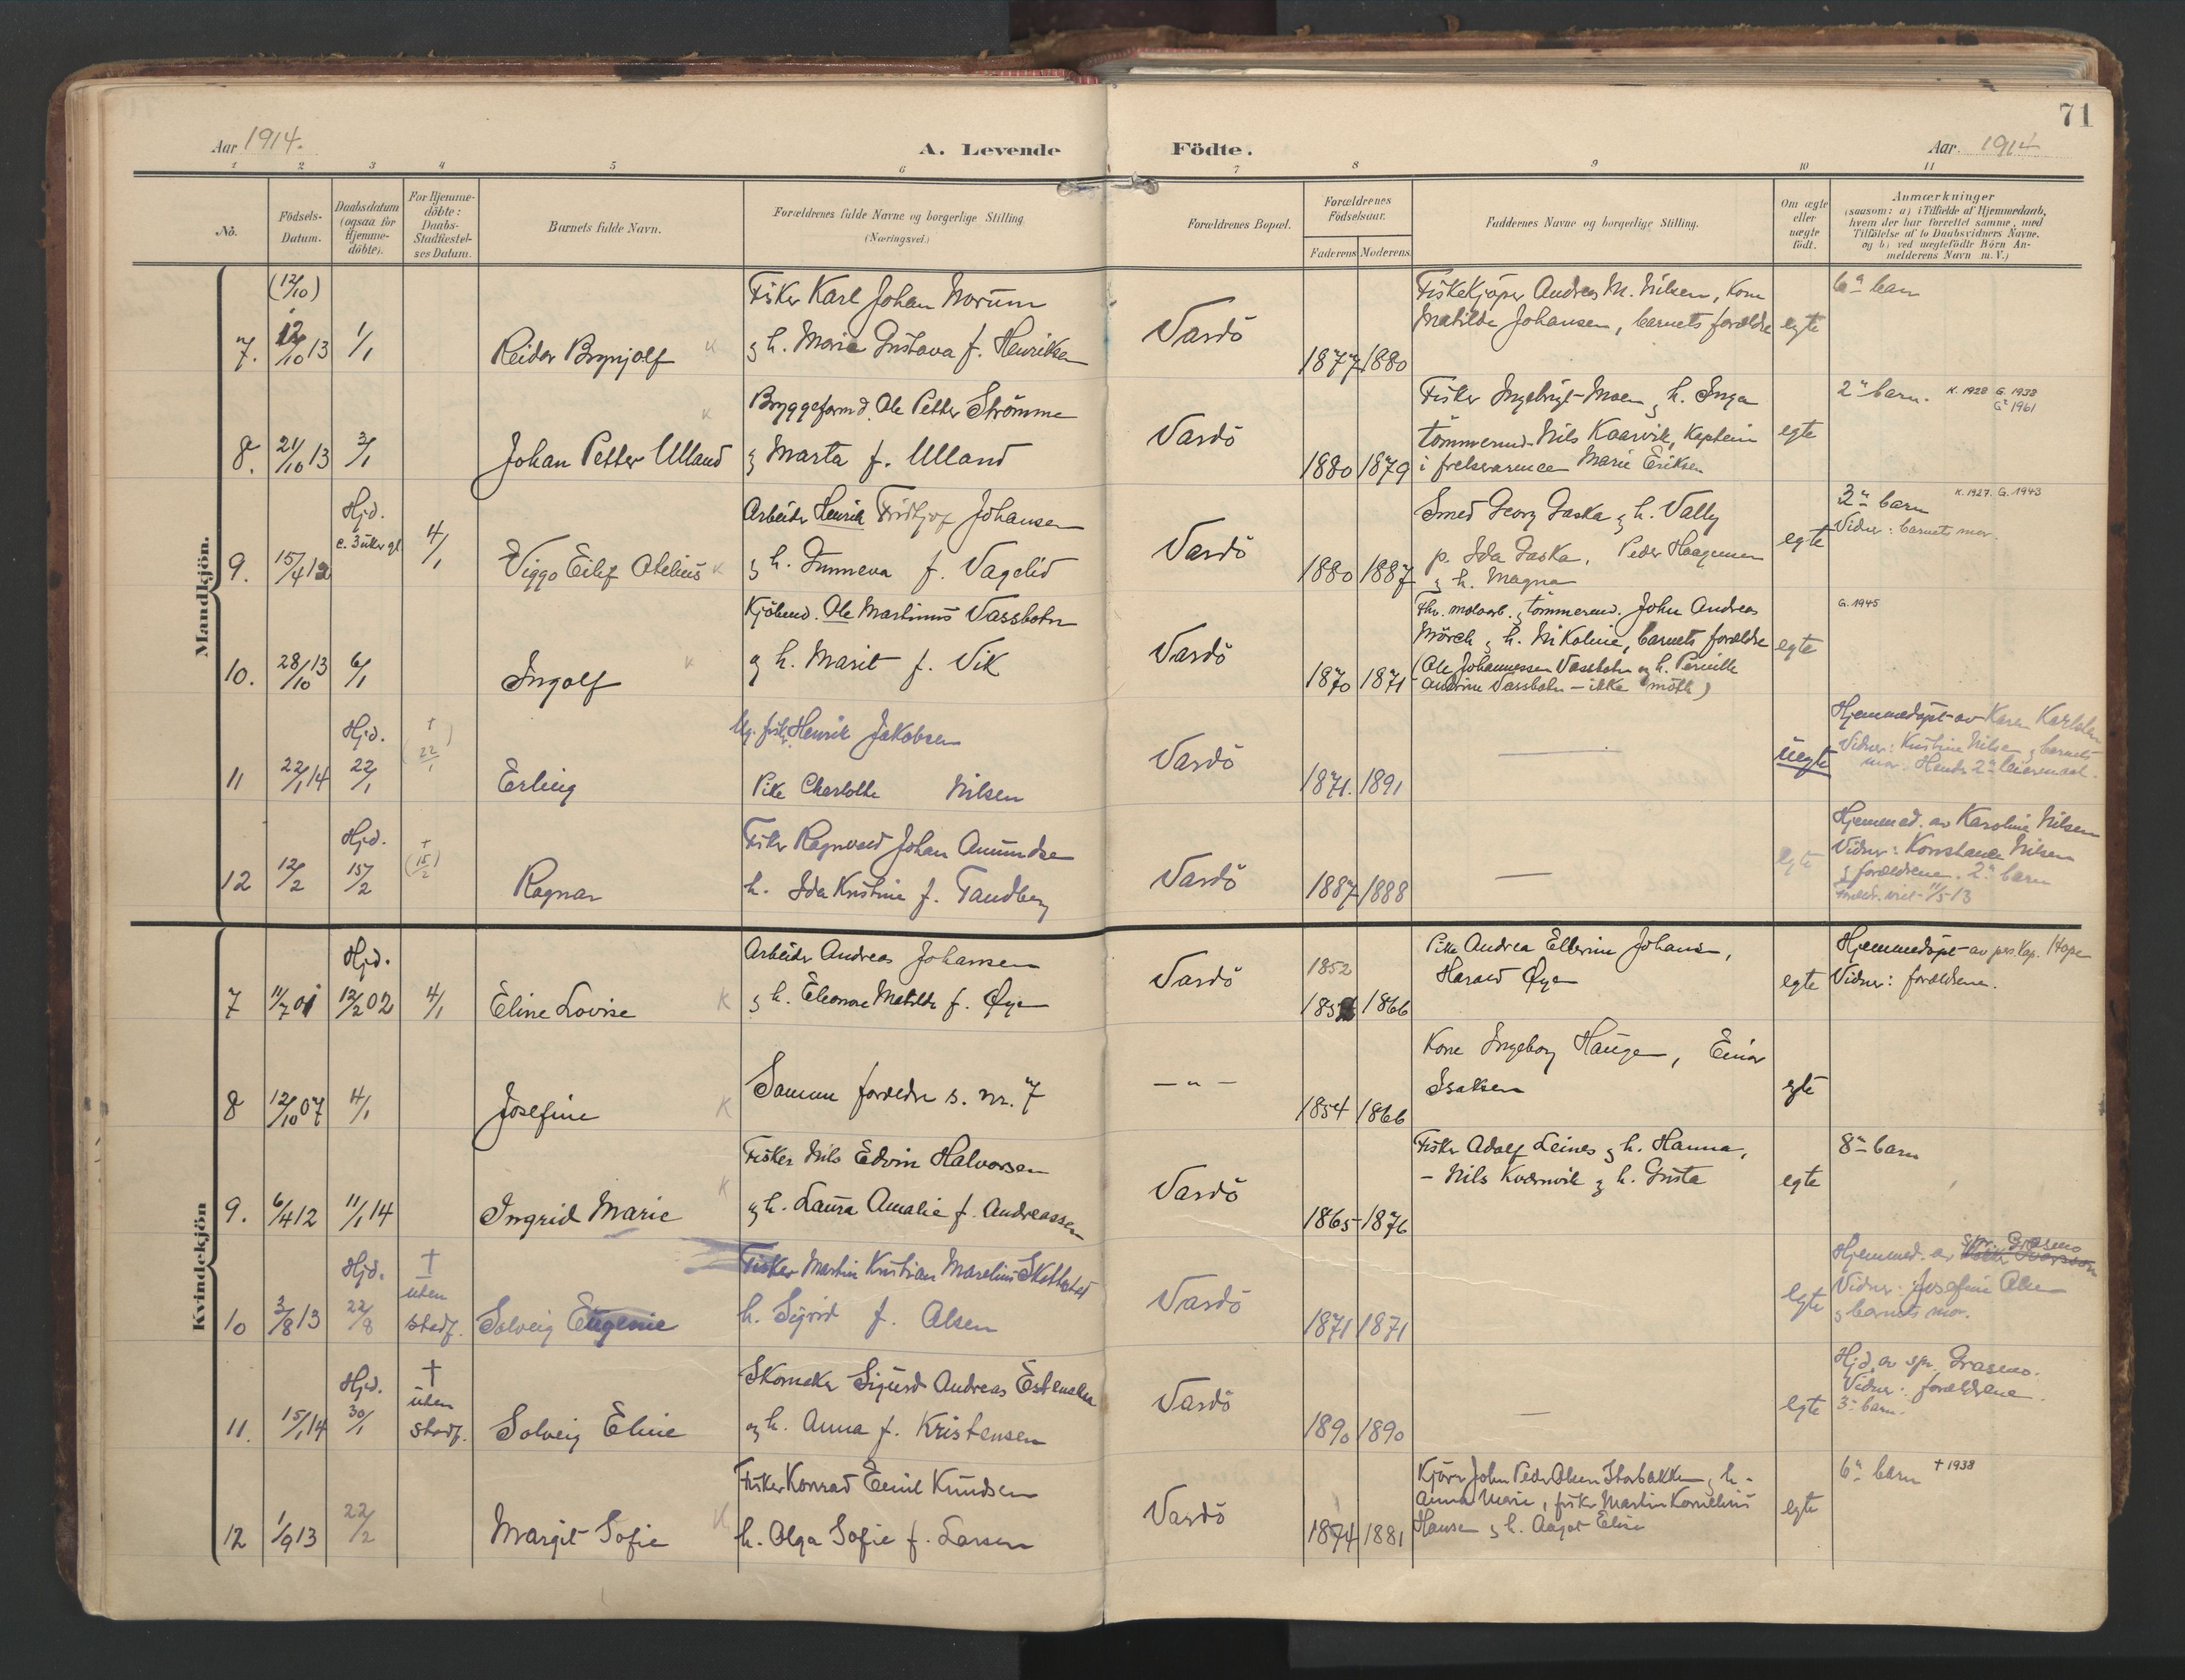 71
Aar 1914.
A. Levende Födte.
Aar. 1914
1 2 3 4 5 6 7 8 9 10 11
No.
Födsels-
Datum.
Daabsdatum
(ogsaa for
Hjemme-
döbte).
For Hjemme-
döbte:
Daabs-
Stadfæstel-
ses Datum.
Barnets fulde Navn.
Forældrenes fulde Navne og borgerlige Stilling
(Næringsvei.)
Forældrenes Bopæl.
Forældrenes
Födselsaar.
Faderens Moderens
Faddernes Navne og borgerlige Stilling.
Om ægte
eller
uægte
födt.
Anmærkninger
(saasom: a) i Tilfælde af Hjemmedaab,
hvem der har forrettet samme, med
Tilföielse af to Daabsvidners Navne.
og b) ved uægtefödte Börn An-
melderens Navn m. V.)
Mandkjön.
(12/10)
7. 12/10 13 1/1 Reidar Brynjolf
Fisker Karl Johan Norum
g h. Marie Gustava f. Henriksen
Vardö
1877 1880
Fiskekjöper Andreas M. Nilsen, Kone
Matilde Johansen, barnets forældre
egte
6te barn
8. 21/10 13 3/1 Johan Petter Ulland
Bryggeformd. Ole Petter Strömme
g Marta f. Ulland
Vardö
1880 1879
Fisker Ingebrigt Moen g h. Inga
tömmermd. Nils Kaarvik, Kaptein
i frelsesarmeen Marie Eriksen
egte
2t barn. K. 1928 G. 1938
G2 1961
9. 15/4 12
Hjd.
c. 3 uker gl.
4/1
Viggo Eilif Otelius
Arbeider Henrik Fridtjof Johansen
g h. Gunneva f. Vagelid
Vardö
1880 1887
Smed Georg Gaska g h. Vally
p. Ida Gaska, Peder Haagensen
g h. Magna
egte
3t barn K. 1927. G. 1943
Vidner: barnets mor.
10. 28/10 13 6/1 Ingolf
Kjöbmd. Ole Martinus Vassbotn
g h. Marit f. Vik
Vardö
1870 1871
Fhv. tömmermd. John Andreas
Mörch g h. Nikoline, barnets forældre
(Ole Johannessen Vassbotn g h. Pernille
Vassbotn - ikke mött)
egte
G. 1945
11 22/1 14
Hjd.
22/1
† (22/1)
Erling
Ug. fisk. Henrik Jakobsen
Pike Charlotte Nilsen
Vardö
1871. 1891
uegte
Hjemmedöpt av Karen Karlsen
Vidner: Kristine Nilsen g barnets
mor. Hendes 2t leiermaal.
12 12/2
Hjd.
15/2
† (15/2)
Ragnar
Fisker Ragnvald Johan Amundsen
h. Ida Kristine f. Tandberg
Vardö
1887 1888
egte
Hjemmed. av Karoline Nilsen
Vidner: Konstance Nilsen
g forældrene. 2t barn
Foreldr. viet 11/5 13
Kvindekjön
7 11/7 01
Hjd.
12/2 02 4/1 Eline Lovise K
Arbeider Andreas Johansen
g h. Eleonore Matilde f. Øye
Vardö
1852
1866
Pike Andrea Ellerine Johans.,
Harald Øye
egte
Hjemmedöpt av pers. Kap. Hope
Vidner: forældrene.
8 12/10 07 4/1 Josefine K
Samme foreldre s. nr. 7
- " -
1854 1866
Kone Ingeborg Haugen, Einar
Isaksen
egte
9. 6/4 12 11/1 14 Ingrid Marie K
Fisker Nils Edvin Halvorsen
g h. Laura Amalie f. Andreassen
Vardö
1865 1876
Fisker Adolf Leines g h. Hanna,
- Nils Kvernvik g h. Gusta
egte
8de barn
10 3/8 13
Hjd.
22/8
†
uten
stadf.
Solveig Eugenie
Fisker Martin Kristian Marelius Skottestad
h. Sigrid f. Olsen
Vardö
1871 1871
egte
Hjemmed. av spr. Grasmo
Vidner: Josefine Olsen
g barnets mor.
11. 15/1 14
Hjd.
30/1
†
uten
stadf.
Solveig Eline
Skomaker Sigurd Andreas Estensen
og h. Anna f. Kristensen
Vardö
1890 1890
egte
Hjd. av spr. Grasmo.
Vidner: forældrene.
3t barn.
12 1/9 13 22/2 Margit Sofie K
Fisker Konrad Emil Knudsen
h. Olga Sofie f. Larsen
Vardö
1874 1881
Kjörer John Peder Olsen Storbakken g h.
Anna Marie, fisker Martin Kornelius
Hansen g h. Aagot Elise
egte
6te barn † 1938